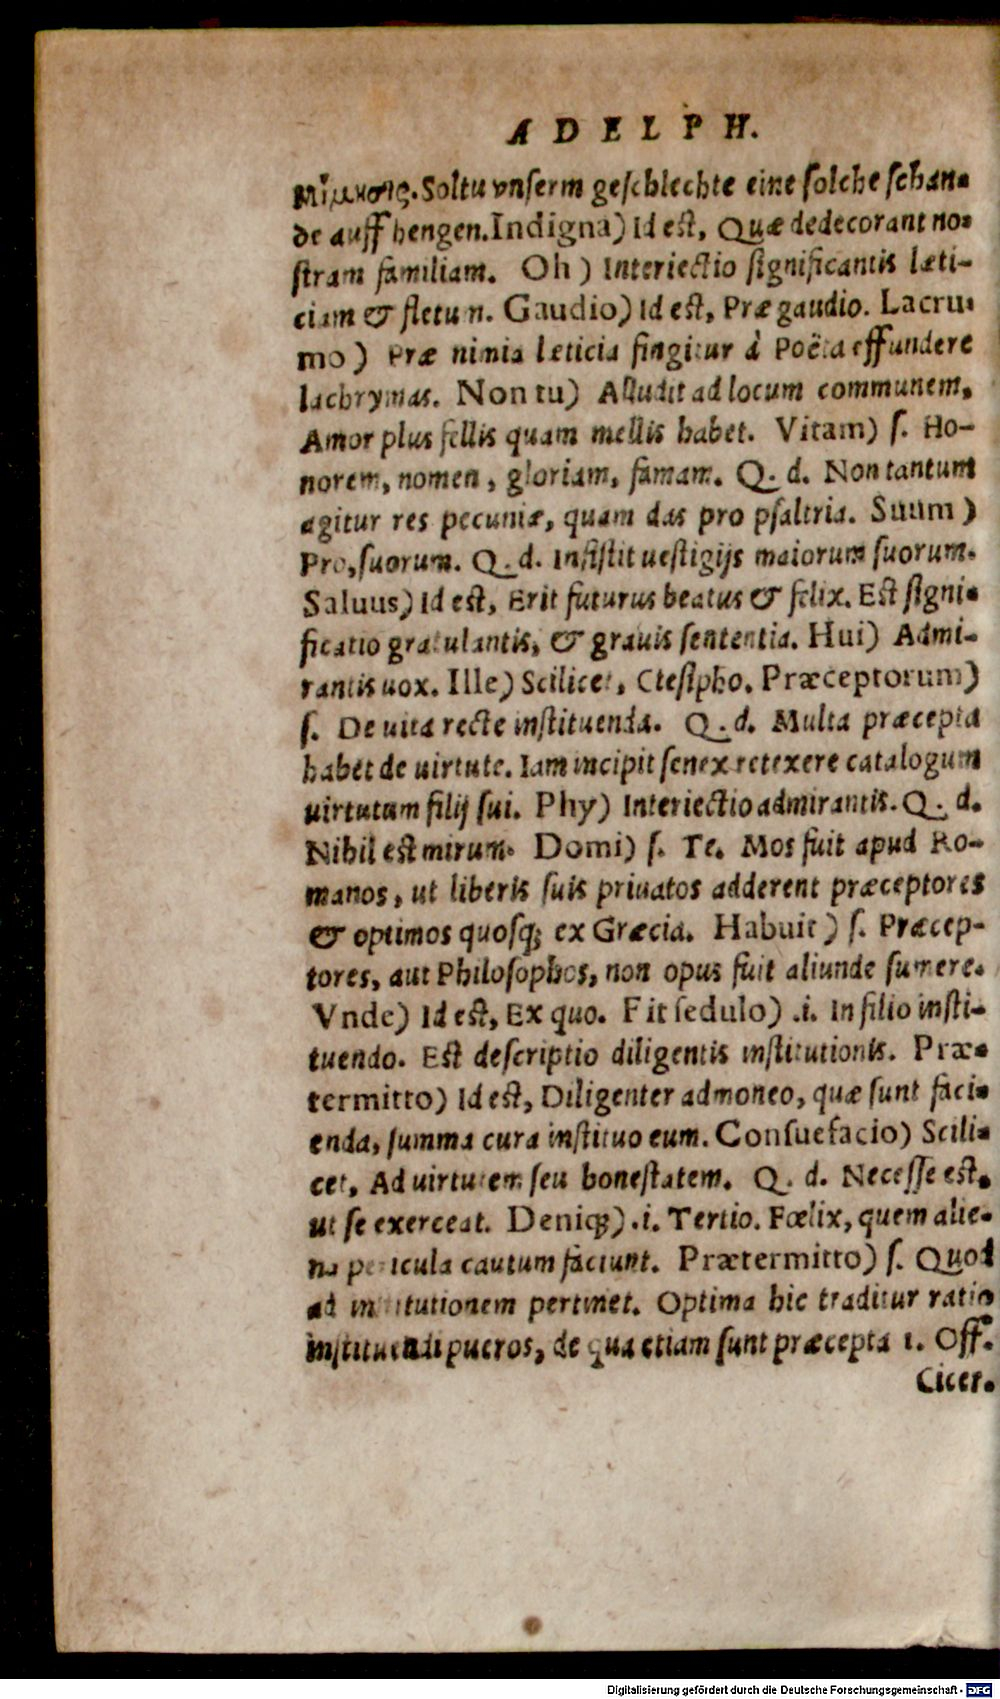 ADELPH.
Μίμησις. Soltu vnserm geschlechte eine solche schan-
de auff hengen. Indigna) Id est, Quæ dedecorant no-
stram familiam. Oh) Interiectio significantis læti-
ciam & fletum. Gaudio) Id est, Præ gaudio. Lacru-
mo) Præ nimia læticia fingitur à Poëta effundere
lachrymas. Non tu) Alludit ad locum communem,
Amor plus fellis quam mellis habet. Vitam) s. Ho-
norem, nomen, gloriam, famam. Q. d. Non tantum
agitur res pecuniæ, quam das pro psaltria. Suum)
Pro, suorum. Q. d. Insistit uestigijs maiorum suorum.
Saluus) Id est, Erit futurus beatus & felix. Est signi-
ficatio gratulantis, & grauis sententia. Hui) Admi-
rantis uox. Ille) Scilicet, Ctesipho. Præceptorum)
s. De uita recte instituenda. Q. d. Multa præcepta
habet de uirtute. Iam incipit senex retexere catalogum
uirtutum filij sui. Phy) Interiectio admirantis. Q. d.
Nihil est mirum. Domi) s. Te. Mos fuit apud Ro-
manos, ut liberis suis priuatos adderent præceptores
& optimos quosq; ex Græcia. Habuit) s. Præcep-
tores, aut Philosophos, non opus fuit aliunde sumere.
Vnde) Id est, Ex quo. Fit sedulo) .i. In filio insti-
tuendo. Est descriptio diligentis institutionis. Præ-
termitto) Id est, Diligenter admoneo, quæ sunt faci-
enda, summa cura instituo eum. Consuefacio) Scili-
cet, Ad uirtutem seu honestatem. Q. d. Necesse est,
ut se exerceat. Deniq;) .i. Tertio. Fœlix, quem alie-
na pericula cautum faciunt. Prætermitto) s. Quod
ad institutionem pertinet. Optima hic traditur ratio
instituendi pueros, de qua etiam sunt præcepta 1. Off.
Cicer.
Digitalisierung gefördert durch die Deutsche Forschungsgemeinschaft - DFG